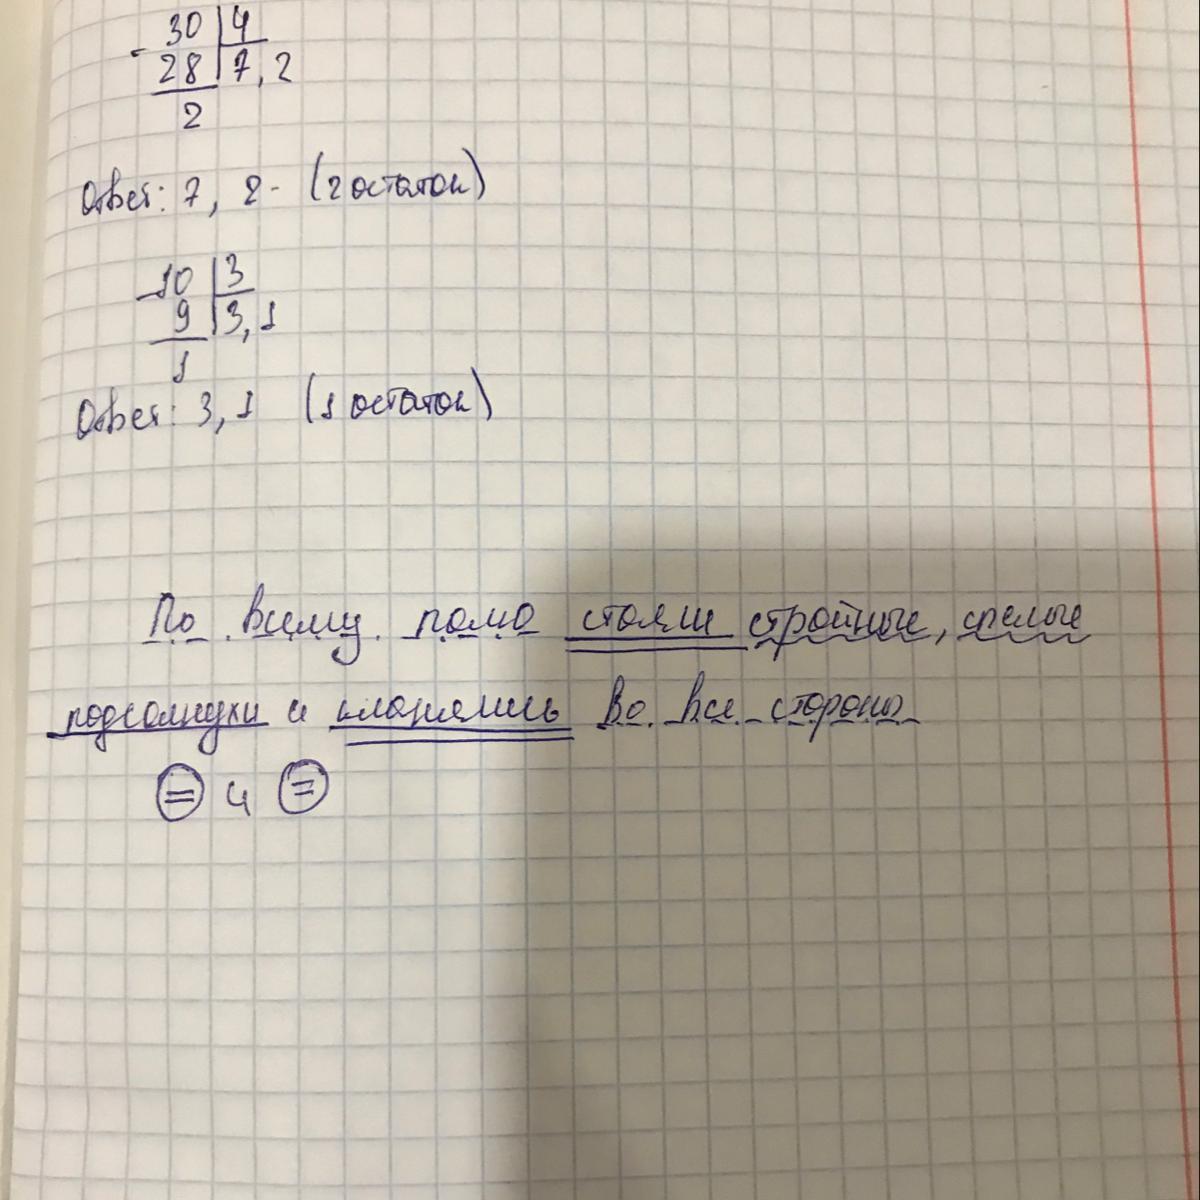 30 4
- 28 7,2
2
Ответ: 7, 2- (2 остаток)
- 10 3
9 3,1
1
Ответ: 3, 1 (1 остаток)
По всему полю стояли стройные, спелые
подсолнухи и кланялись во все стороны
= и =